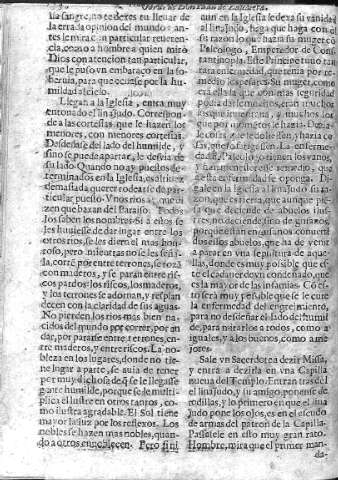 Obras de Don Juan de Zabaleta.
la sangre, no te dexes tu lleuar de
la errada opinion del mundo: antes
lemira con particular reuerencia,
como a hombre a quien miró
Dios con atencion tan particular,
que le puso vn embaraço en la soberuia,
para que entrasse por la humildad
al cielo.
Llegan a la Iglesia, entra muy
entonado el linajudo. Corresponde
a las cortesias que le hazen los
menores, con menores cortesias.
Desdeñase del lado del humilde, y
sino se puede apartar, le desvia de
su lado. Quando no ay puestos determinados
en la Iglesia, es altiuez
demasiada querer rodearse de particular
puesto. Vnos rios ay que dizen
que baxan del Paraiso. Todos
los saben los nombres. Si a estos se
les huuiesse de dar lugar entre los
otros rios, se les diera el mas honroso,
pero mientras no se les señala,
corrē por entre terrones, se rozan
con maderos, y se paran entre riscos
pardos: los riscos, los maderos,
y los terrones se adornan, y resplandecen
con la claridad de sus aguas.
No pierden los rios mas bien nacidos
del mundo por correr, por andar,
por pararse entre terrones, entre
maderos, y entre riscos. La nobleza
en los lugares, donde no tiene
lugar a parte, se auia de tener
por muy dichosa de q̃ se le llegasse
gente humilde, porque se le multiplica
el lustre en otros tantos, como
ilustra agradable. El Sol tiene
mayor la luz por los reflexos. Los
nobles se hazen mas nobles, quando
a otros ennoblecen. Pero si ni
aun en la Iglesia se dexa su vanidad
el linajudo, haga que haga con el
la razon lo que hazia su muger cō
Paleologo, Emperador de Constantinopla.
Este Principe tuuo tan
estraña enfermedad, que tenia por remedio
los pesares. Su muger, como
era ella la que con mas seguridad
podia darselos, eran muchos
los que inuentaua, y muchos los
que por amor les hazia.
La enfermedad
de Paleologo tienen los vanos,
y han menester esse remedio, que
de su enfermedad se oponga. Digale
en la Iglesia al linajudo su razon,
que es tierra, que aunque piensa
que desciende de abuelos ilustres,
no desciende sino de gusanos,
porque estan en gusanos conuertidos
essos abuelos, que ha de venir
a parar en vna sepultura de aquellas,
donde es muy possible que este
este cadauer de vn condenado, que
es la mayor de las infamias. Cō esto
será muy possible que se le cure
la enfermedad del engreimiento,
para no desdeñar el lado del humilde,
para mirarlos a todos, como a
iguales, y a los buenos, como a mejores.
Sale vn Sacerdote a dezir Missa,
y entra a dezirla en vna Capilla
nueua del Templo. Entran tras del
el linajudo, y su amigo, ponense de
rodillas, y lo primero en que el linajudo
pone los ojos, es en el escudo
de armas del patron de la Capilla.
Passasele en esto muy gran rato.
Hombre, mira que el primer man-
da-